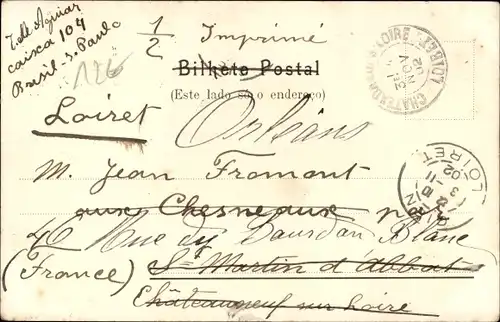 J. de Aguiar
caixa 104
Brasil - S. Paulo
1/2 Imprimé
126
Bilhete Postal
(Este lado só o endereço)
Loiret
Orléans
M. Jean Fromont
aux Chesneaux
40 Rue du Bourdon Blanc
(France)
St Martin d'Abbat
Châteauneuf sur Loire
LOIRE LOIRET
02
LOIRET
02